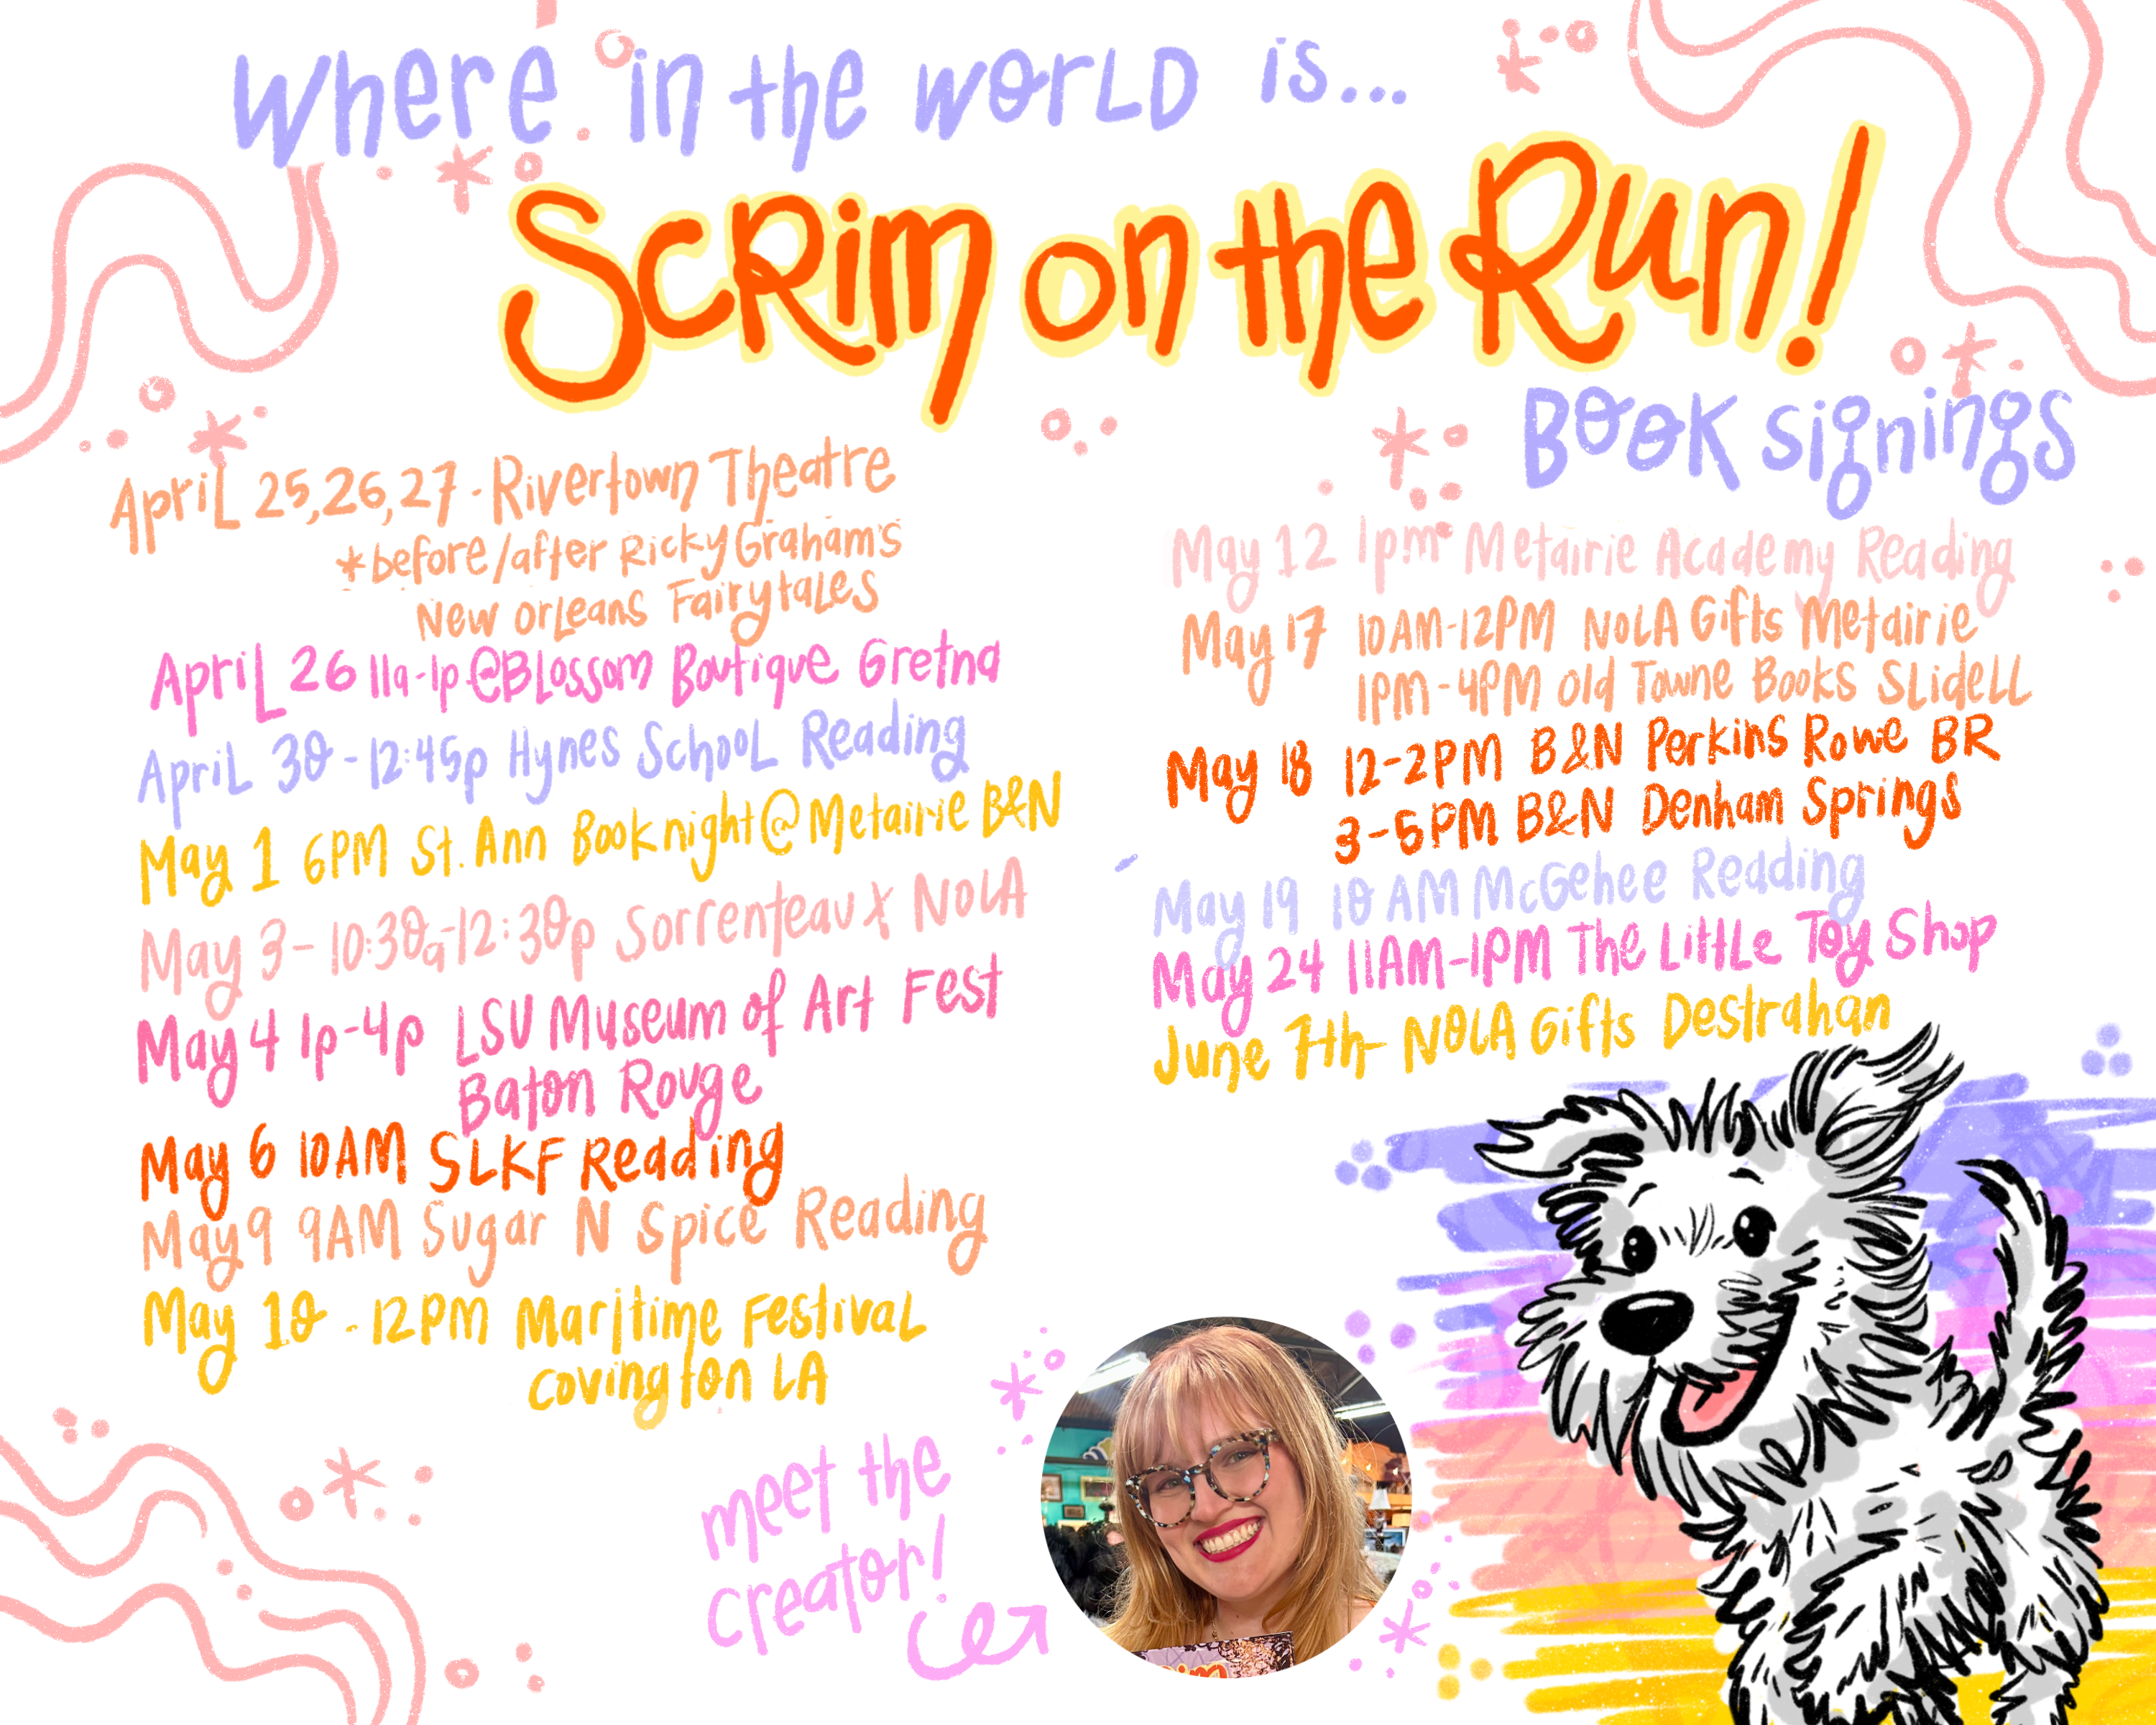 Where in the world is...
Scrim on the Run!
Book signings
April 25,26,27 - Rivertown Theatre
*before/after Ricky Graham's
New Orleans Fairytales
April 26 11a-1p @Blossom Boutique Gretna
April 30 - 12:45p Hynes School Reading
May 1 6PM St. Ann Book night @ Metairie B&N
May 3 - 10:30a-12:30p Sorrenteaux NOLA
May 4 1p-4p LSU Museum of Art Fest
Baton Rouge
May 6 10AM SLKF Reading
May 9 9AM Sugar N Spice Reading
May 10 - 12PM Maritime Festival
Covington LA
May 12 1pm Metairie Academy Reading
May 17 10AM-12PM NOLA Gifts Metairie
1PM-4PM Old Towne Books Slidell
May 18 12-2PM B&N Perkins Rowe BR
3-5PM B&N Denham Springs
May 19 10AM McGehee Reading
May 24 11AM-1PM The Little Toy Shop
June 7th - NOLA Gifts Destrahan
meet the
creator!